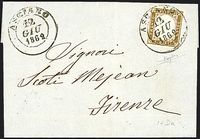 ASCIANO
12
GIU
1862
ASCIANO
12
GIU
1862
Signori
Scoti Mejean
Firenze